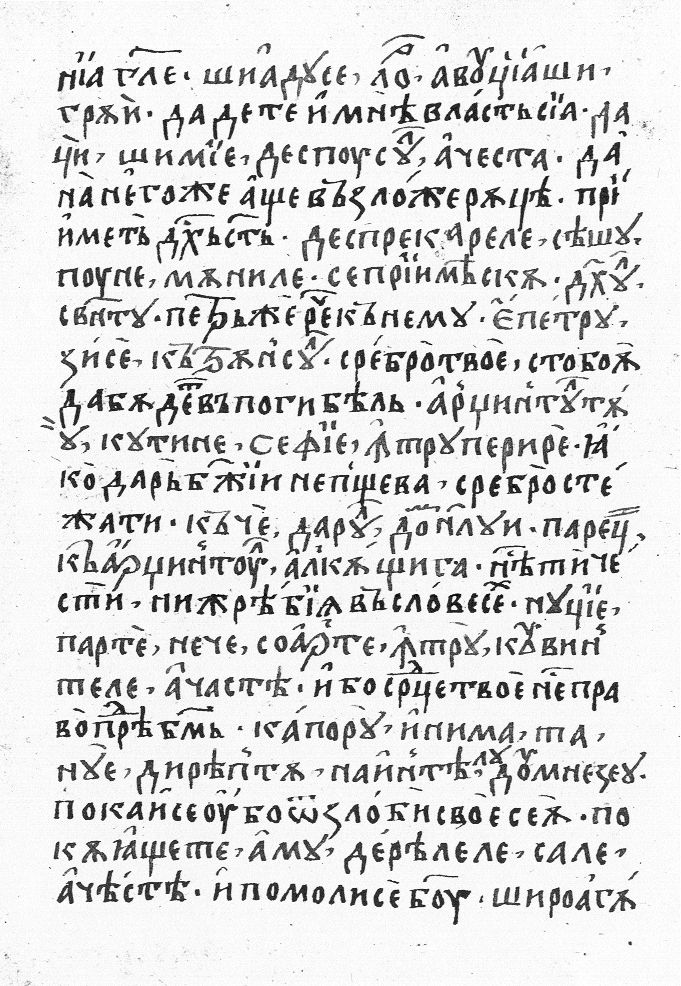 нїа гл҃е · ши а̂дусе , ло̑ , а̂воуцїа̂ши ,
грѫй · дадете и҆ мнѣ власть сїа · да
ци , шимїе , деспоусꙋл , а̂честа · да̂
на не́гоже а҆ще възло́жерѫцѣ · прїи
и҆меть дх҃ьсть · деспрекареле , сѣшу
поуне , мѫниле · сепрїимѣскѫ · дх҃ꙋл
свн҃ту · петръже рече къ нему · є҆ петру ,
зисе , кътрѫнсꙋл · сребро твое , стобоѫ
дабѫдет въ погибѣль · а҆рџинтꙋл тѫ
у , кутине , сефїе , ꙟтру перире · ꙗ
ко даръ бж҃їи непщева , сребро сте
жати · къче , дарꙋл , домнлуи · парец ,
къарџинтоул , а҆лкѫщига · нѣ ти че
сти , ни жрѣбїѧ въ словесе · нуцїе ,
парте , нече , соарте , ꙟтру , кувин
теле , а҆частѣ · и҆бо срдце твое не пра
во прѣд бм҃ь · ка́порꙋ , и҆нима , та ,
нуе , дирѣптѫ , наи҆нтѣ , луй дꙋмнезеу ·
покаисе оубо ѿ злоби свое сеѫ · по
кѫꙗ҆щете , а҆му , дерѣлеле , сале ,
а҆чѣстѣ · и҆ помолисе бг҃оу · ши роагѫ